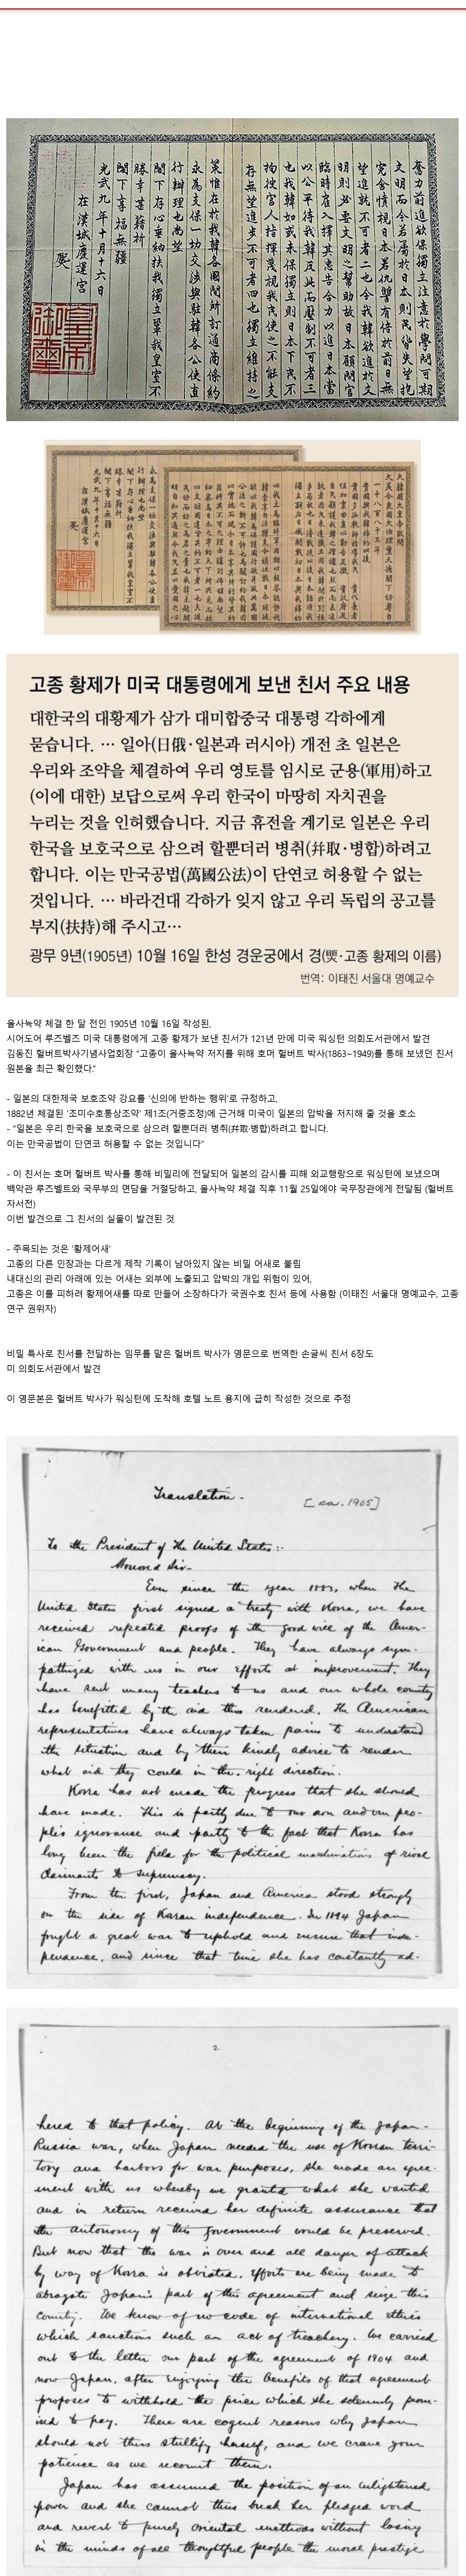 奮力前進欲保獨立注意於學問可期
文明而今若屬於日本則民皆失望抱
冤含憤視日本若仇讐有倍於前日無
望進就不可者二也今我韓欲進於文
明則必要文明之幫助故日本顧問官
臨時雇入擇其忠告合力以進日本當
以公平待我韓反此而壓制不可者三
也我韓如或未保獨立則日本下民不
拘使官人指揮蔑視我民使之不能支
存無望進步不可者四也獨立維持之
策惟在於我韓各國間所訂通商條約
永為支保一切交涉與駐韓各公使直
行辦理也尚望
閣下存心垂納扶我獨立單我皇室不
勝幸甚藉祈
閣下享福無疆
光武九年十月十六日
在漢城慶運宮
皇帝御璽
永為支保一切交涉與駐韓各公使直
行辦理也尚望
閣下存心垂納扶我獨立單我皇室不
勝幸甚藉祈
閣下享福無疆
光武九年十月十六日
在漢城慶運宮
고종 황제가 미국 대통령에게 보낸 친서 주요 내용
대한국의 대황제가 삼가 대미합중국 대통령 각하에게
묻습니다. … 일아(日俄·일본과 러시아) 개전 초 일본은
우리와 조약을 체결하여 우리 영토를 임시로 군용(軍用)하고
(이에 대한) 보답으로써 우리 한국이 마땅히 자치권을
누리는 것을 인허했습니다. 지금 휴전을 계기로 일본은 우리
한국을 보호국으로 삼으려 할뿐더러 병취(幷取·병합)하려고
합니다. 이는 만국공법(萬國公法)이 단연코 허용할 수 없는
것입니다. … 바라건대 각하가 잊지 않고 우리 독립의 공고를
부지(扶持)해 주시고…
광무 9년(1905년) 10월 16일 한성 경운궁에서 경(㷗·고종 황제의 이름)
번역: 이태진 서울대 명예교수
을사늑약 체결 한 달 전인 1905년 10월 16일 작성된,
시어도어 루즈벨즈 미국 대통령에게 고종 황제가 보낸 친서가 121년 만에 미국 워싱턴 의회도서관에서 발견
김동진 헐버트박사기념사업회장 “고종이 을사늑약 저지를 위해 호머 헐버트 박사(1863~1949)를 통해 보냈던 친서
원본을 최근 확인했다.”
- 일본의 대한제국 보호조약 강요를 '신의에 반하는 행위'로 규정하고,
1882년 체결된 '조미수호통상조약' 제1조(거중조정)에 근거해 미국이 일본의 압박을 저지해 줄 것을 호소
- “일본은 우리 한국을 보호국으로 삼으려 할뿐더러 병취(幷取·병합)하려고 합니다.
이는 만국공법이 단연코 허용할 수 없는 것입니다”
- 이 친서는 호머 헐버트 박사를 통해 비밀리에 전달되어 일본의 감시를 피해 외교행랑으로 워싱턴에 보냈으며
백악관 루즈벨트와 국무부의 면담을 거절당하고, 을사늑약 체결 직후 11월 25일에야 국무장관에게 전달됨 (헐버트
자서전)
이번 발견으로 그 친서의 실물이 발견된 것
- 주목되는 것은 '황제어새'
고종의 다른 인장과는 다르게 제작 기록이 남아있지 않는 비밀 어새로 불림
내대신의 관리 아래에 있는 어새는 외부에 노출되고 압박의 개입 위험이 있어,
고종은 이를 피하려 황제어새를 따로 만들어 소장하다가 국권수호 친서 등에 사용함 (이태진 서울대 명예교수, 고종
연구 권위자)
비밀 특사로 친서를 전달하는 임무를 맡은 헐버트 박사가 영문으로 번역한 손글씨 친서 6장도
미 의회도서관에서 발견
이 영문본은 헐버트 박사가 워싱턴에 도착해 호텔 노트 용지에 급히 작성한 것으로 추정
Translation.
[ca. 1905]
To the President of the United States:-
Honored Sir-
Ever since the year 1883, when the
United States first signed a treaty with Korea, we have
received repeated proofs of the good will of the Amer-
ican Government and people. They have always sym-
pathized with us in our efforts at improvement. They
have sent many teachers to us and our whole country
has benefitted by the aid thus rendered. The American
representatives have always taken pains to understand
the situation and by their kindly advice to render
what aid they could in the right direction.
Korea has not made the progress that she should
have made. This is partly due to our own and our peo-
ple's ignorance and partly to the fact that Korea has
long been the field for the political machinations of rival
claimants to supremacy.
From the first, Japan and America stood strongly
on the side of Korean independence. In 1894 Japan
fought a great war to uphold and ensure that inde-
pendence, and since that time she has constantly ad-
2.
hered to that policy. At the beginning of the Japan-
Russia war, when Japan needed the use of Korean terri-
tory and harbors for war purposes, she made an agree-
ment with us whereby we granted what she wanted
and in return received her definite assurance that
the autonomy of this government would be preserved.
But now that the war is over and all danger of attack
by way of Korea is obviated, efforts are being made to
abrogate Japan's part of this agreement and seize this
country. We know of no code of international ethics
which sanctions such an act of treachery. We carried
out to the letter our part of the agreement of 1904 and
now Japan, after enjoying the benefits of that agreement
proposes to withhold the price which she solemnly prom-
ised to pay. There are cogent reasons why Japan
should not thus stultify herself, and we crave your
patience as we recount them.
Japan has assumed the position of an enlightened
power and she cannot thus break her pledged word
and revert to purely oriental methods without losing
in the minds of all thoughtful people the moral prestige